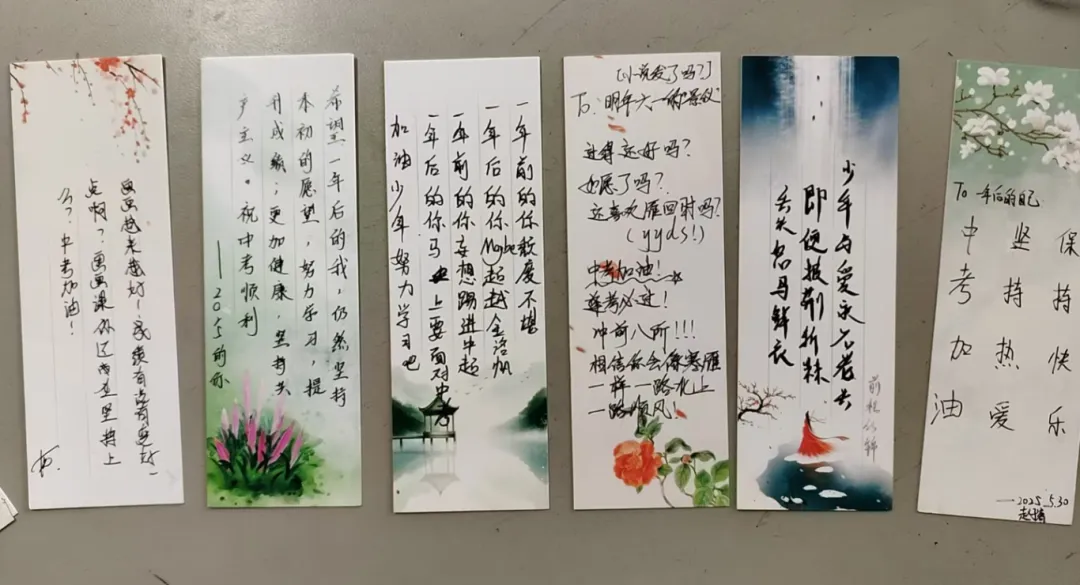 画画越来越好！成绩有没有更好一
点啊？画画课你还有在坚持上
么？中考加油！
希望一年后的我，仍然坚持
本初的愿望，努力学习，提
升成绩；更加健康，坚持共
产主义。祝中考顺利
——2025的你
一年前的你数度不堪
一年后的你Maybe超越全
一年前的你妄想踢进中超
一年后的你马上要面对中考
加油少年努力学习吧
[小说发了吗？]
To：明年六一的
过得还好吗？
如愿了吗？
还喜欢雁回时吗？
(yyds！)
中考加油！
逢考必过！
冲前八所！！！
相信你会像寒雁
一样一路水上
一路顺风！
少年与爱永不老去
即便披荆斩棘
丢失怒马鲜衣
前程似锦
To 一年后的自己
保持快乐
坚持热爱
中考加油
—2025.5.30
赵